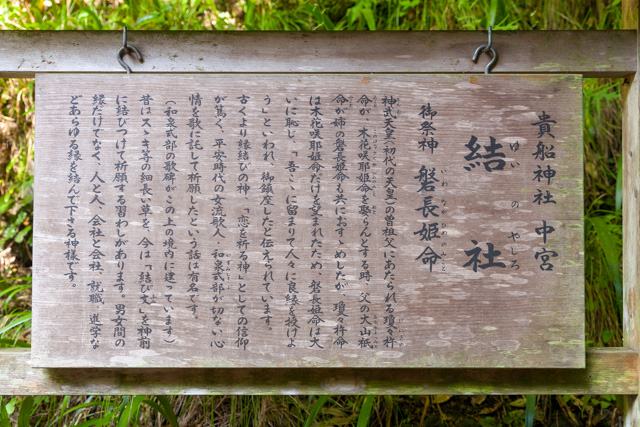 貴船神社 中宮
結社
ゆいのやしろ
御祭神 磐長姫命
いわながひめのみこと
神武天皇(初代の天皇)の曽祖父にあたられる瓊々杵
命が、木花咲耶姫命を娶らんとする時、父の大山祇
命が姉の磐長姫命も共におすゝめしたが、瓊々杵命
は木花咲耶姫命だけを望まれたため、磐長姫命は大
いに恥じ、「吾こゝに留まりて人々に良縁を授けよ
う」といわれ、御鎮座したと伝えられています。
古くより縁結びの神、「恋を祈る神」としての信仰
が篤く、平安時代の女流歌人・和泉式部が切ない心
情を歌に託して祈願したという話は有名です。
(和泉式部の歌碑がこの上の境内に建っています)
昔はスゝき等の細長い草を、今は「結び文」を神前
に結びつけて祈願する習わしがあります。男女間の
縁だけでなく、人と人、会社と会社、就職、進学な
どあらゆる縁を結んで下さる神様です。